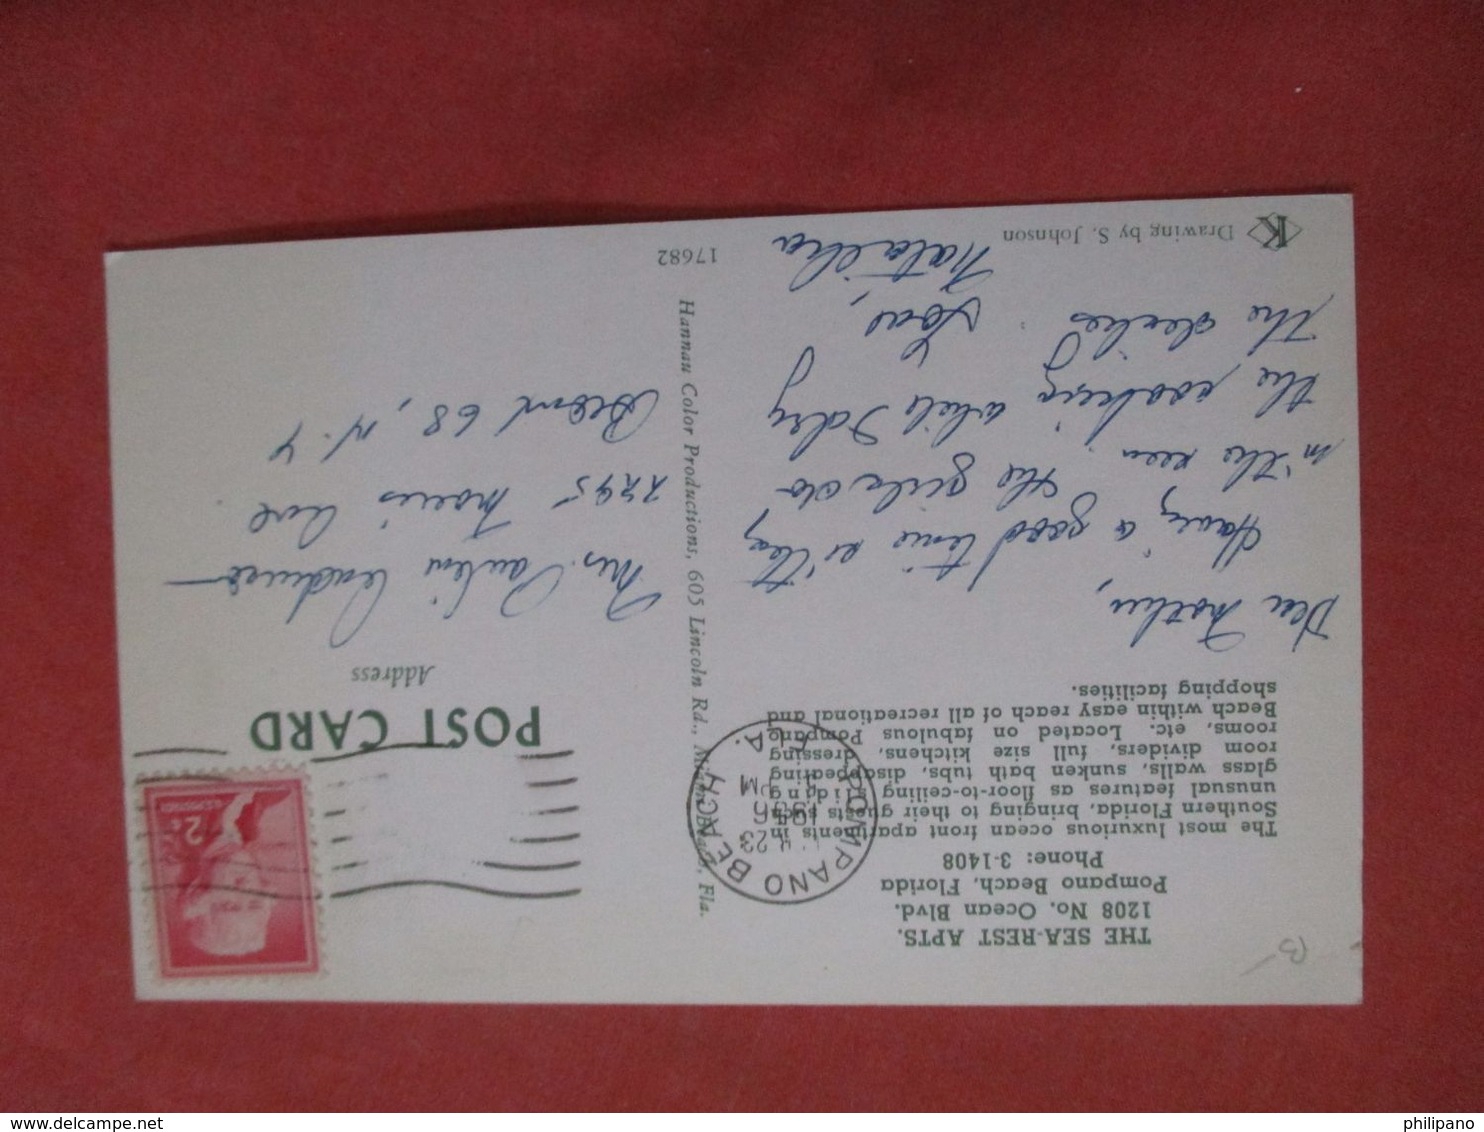 THE SEA-REST APTS.
1208 No. Ocean Blvd.
Pompano Beach, Florida
Phone: 3-1408
The most luxurious ocean front apartments in
Southern Florida, bringing to their guests such
unusual features as floor-to-ceiling sliding
glass walls, sunken bath tubs, disappearing
room dividers, full size kitchens, dressing
rooms, etc. Located on fabulous Pompano
Beach within easy reach of all recreational and
shopping facilities.
Dear Mother,
Having a good time
in the sun the girls do
the cooking while I dry
the dishes
Love,
Natalie
Drawing by S. Johnson
K
Hannau Color Productions, 605 Lincoln Rd., Miami Beach, Fla.
17682
POMPANO BEACH
FLA.
23
PM
1956
POST CARD
Address
U.S. POSTAGE
2¢
Mrs. Pauline
2295 Morris Ave
Bronx 68, N.Y
philipano